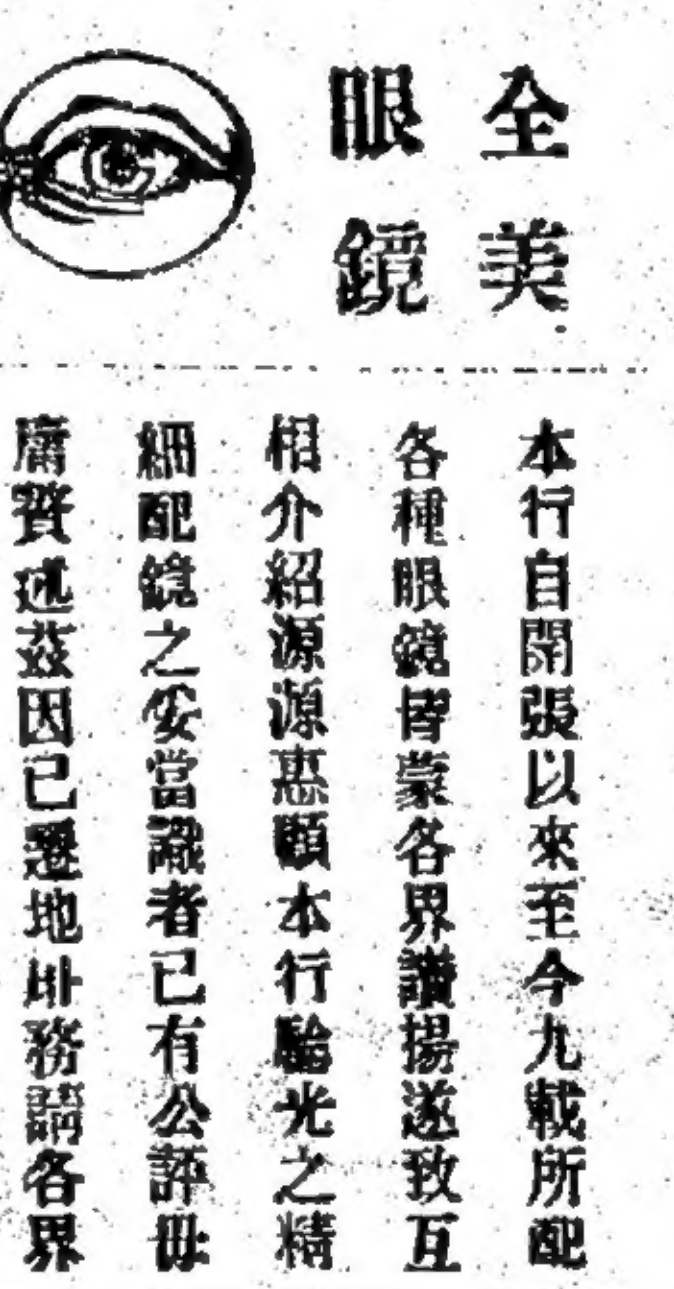 全美
眼鏡
本行自開張以來至今九載所配
各種眼鏡皆蒙各界讚揚遂致互
相介紹源源惠顧本行驗光之精
細配鏡之妥當識者已有公評毋
庸贅述茲因已遷地址務請各界